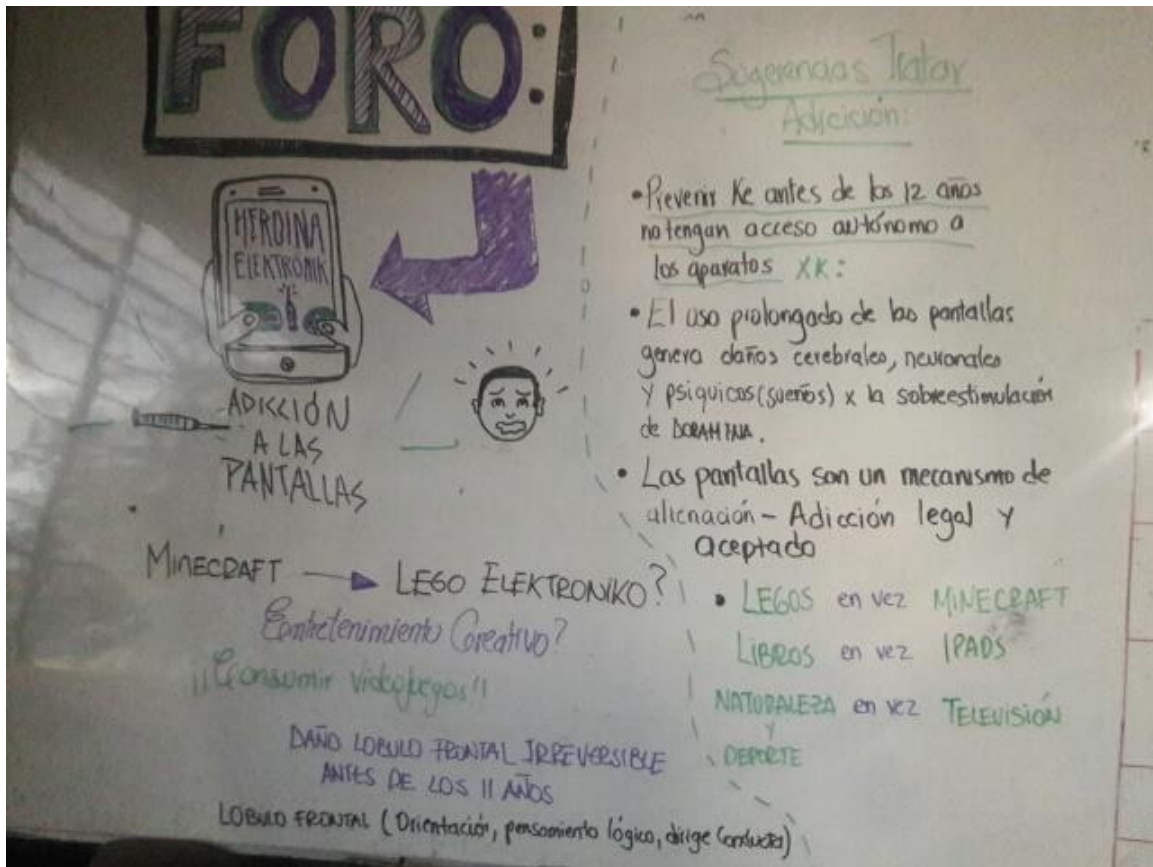 FORO:
HEROINA
ELEKTRONIK
ADICCIÓN
A LAS
PANTALLAS
MINECRAFT → LEGO ELEKTRONIKO?
Entretenimiento Creativo?
¡¡Consumir videojuegos!!
DAÑO LOBULO FRONTAL IRREVERSIBLE
ANTES DE LOS 11 AÑOS
LOBULO FRONTAL (Orientación, pensamiento lógico, dirige Conducta)
Sugerencias Tratar
Adicición:
• Prevenir Ke antes de los 12 años
no tengan acceso autónomo a
los aparatos XK:
• El uso prolongado de las pantallas
genera daños cerebrales, neuronales
y psiquicos (sueños) x la sobreestimulación
de DOPAMINA.
• Las pantallas son un mecanismo de
alienación - Adicción legal y
aceptado
• LEGOS en vez MINECRAFT
LIBROS en vez IPADS
NATURALEZA en vez TELEVISIÓN
Y
DEPORTE